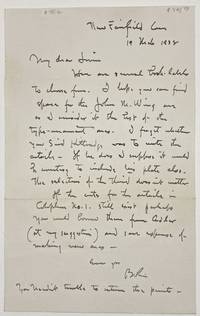 New Fairfield Conn
19 Feb 1932
My dear Irvin
Here are several book-labels
to choose from. I hope you can find
space for the John M. Wing one
as I consider it the best of the
type-ornament ones. I forget whether
you said Hatherly was to write the
article - If he does I suppose it would
be necessary to include his plate also.
The selection of the third doesn't matter
If the cuts for the article in
Colophon No. 1. still exist perhaps
you could borrow them from Adler
(at my suggestion) and save expense of
making new ones -
Sincerely yrs
BR
You needn't trouble to return the prints -